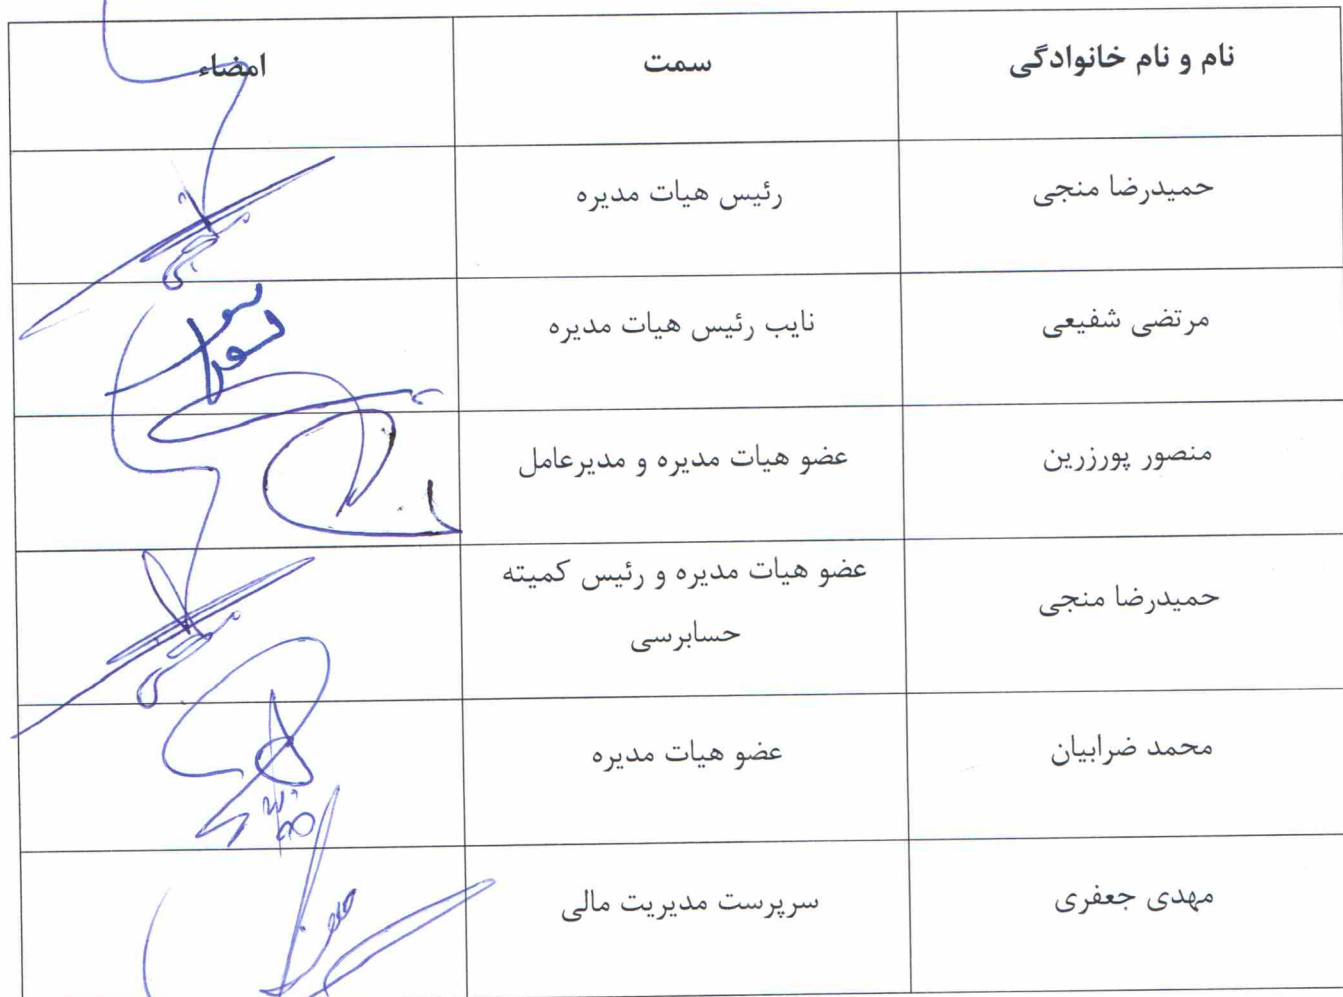 نام و نام خانوادگی سمت امضاء
حمیدرضا منجی رئیس هیات مدیره
مرتضی شفیعی نایب رئیس هیات مدیره
منصور پورزرین عضو هیات مدیره و مدیرعامل
حمیدرضا منجی عضو هیات مدیره و رئیس کمیته
حسابرسی
محمد ضرابیان عضو هیات مدیره
مهدی جعفری سرپرست مدیریت مالی